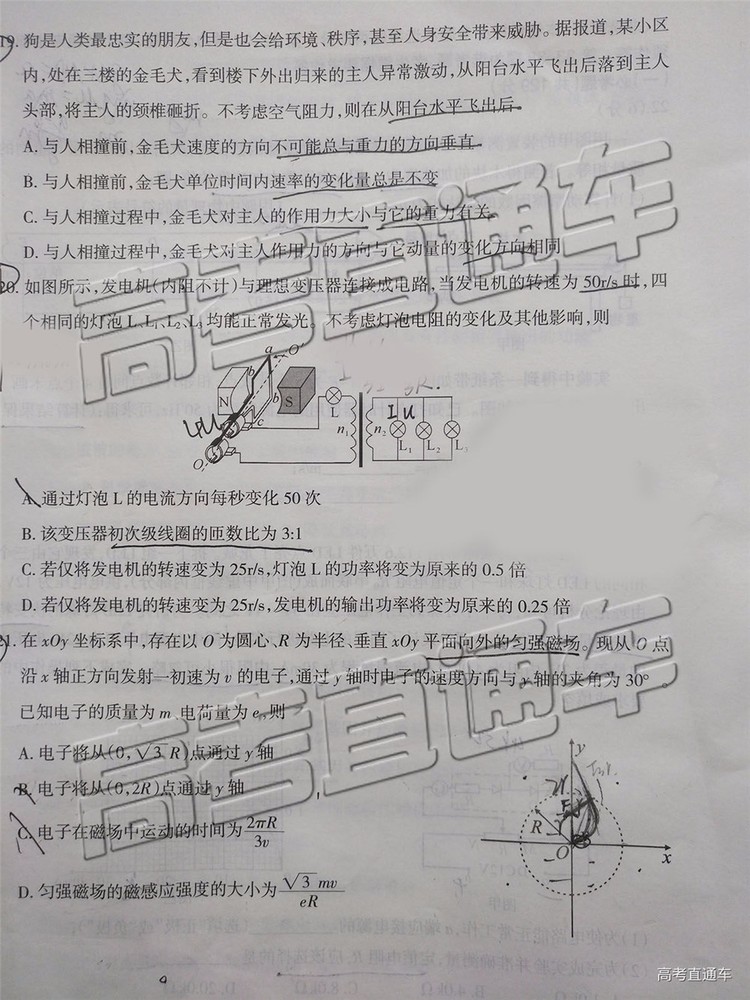 19. 狗是人类最忠实的朋友,但是也会给环境、秩序,甚至人身安全带来威胁。据报道,某小区
内,处在三楼的金毛犬,看到楼下外出归来的主人异常激动,从阳台水平飞出后落到主人
头部,将主人的颈椎砸折。不考虑空气阻力,则在从阳台水平飞出后
A. 与人相撞前,金毛犬速度的方向不可能总与重力的方向垂直
B. 与人相撞前,金毛犬单位时间内速率的变化量总是不变
C. 与人相撞过程中,金毛犬对主人的作用力大小与它的重力有关
D. 与人相撞过程中,金毛犬对主人作用力的方向与它动量的变化方向相同
20. 如图所示,发电机(内阻不计)与理想变压器连接成电路,当发电机的转速为50r/s时,四
个相同的灯泡L、L₁、L₂、L₃均能正常发光。不考虑灯泡电阻的变化及其他影响,则
a O′
N b b S
c
O
L
n₁ n₂
I U
L₁ L₂ L₃
A. 通过灯泡L的电流方向每秒变化50次
B. 该变压器初次级线圈的匝数比为3:1
C. 若仅将发电机的转速变为25r/s,灯泡L的功率将变为原来的0.5倍
D. 若仅将发电机的转速变为25r/s,发电机的输出功率将变为原来的0.25倍
21. 在xOy坐标系中,存在以O为圆心、R为半径、垂直xOy平面向外的匀强磁场。现从O点
沿x轴正方向发射一初速为v的电子,通过y轴时电子的速度方向与y轴的夹角为30°。
已知电子的质量为m、电荷量为e,则
A. 电子将从(0,√3R)点通过y轴
B. 电子将从(0,2R)点通过y轴
C. 电子在磁场中运动的时间为2πR/3v
D. 匀强磁场的磁感应强度的大小为√3mv/eR
y
R
O
x
高考直通车
高考直通车
高考直通车